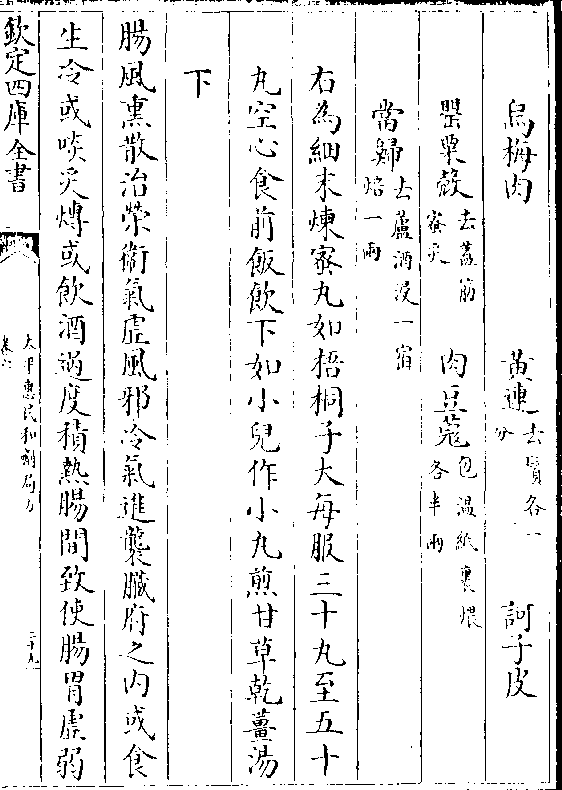 烏梅肉　黃連去鬚各一分　訶子皮
罌粟殻去葢筋蜜炙　肉豆蔻包濕紙裹煨各半兩
當歸去蘆酒浸一宿焙一兩
右為細末煉蜜丸如梧桐子大每服三十九至五十
丸空心食前飯飲下如小兒作小丸煎甘草乾薑湯
下
腸風熏散治榮衞氣虛風邪冷氣進襲臟府之内或食
生冷或啖炙煿或飲酒過度積熱腸間致使腸胃虛弱
欽定四庫全書
太平惠民和劑局方
卷六
二十九